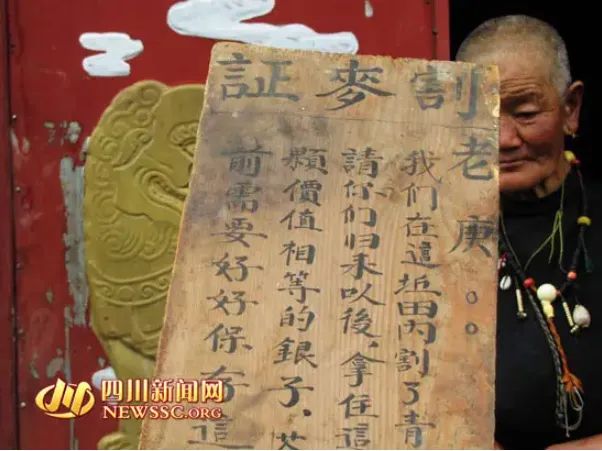 割麥証
老庚。。
我们在這坵田内割了青
請你们归来以後，拿住這
顆價值相等的銀子、
前需要好好保存這
四川新闻网
NEWSSC.ORG